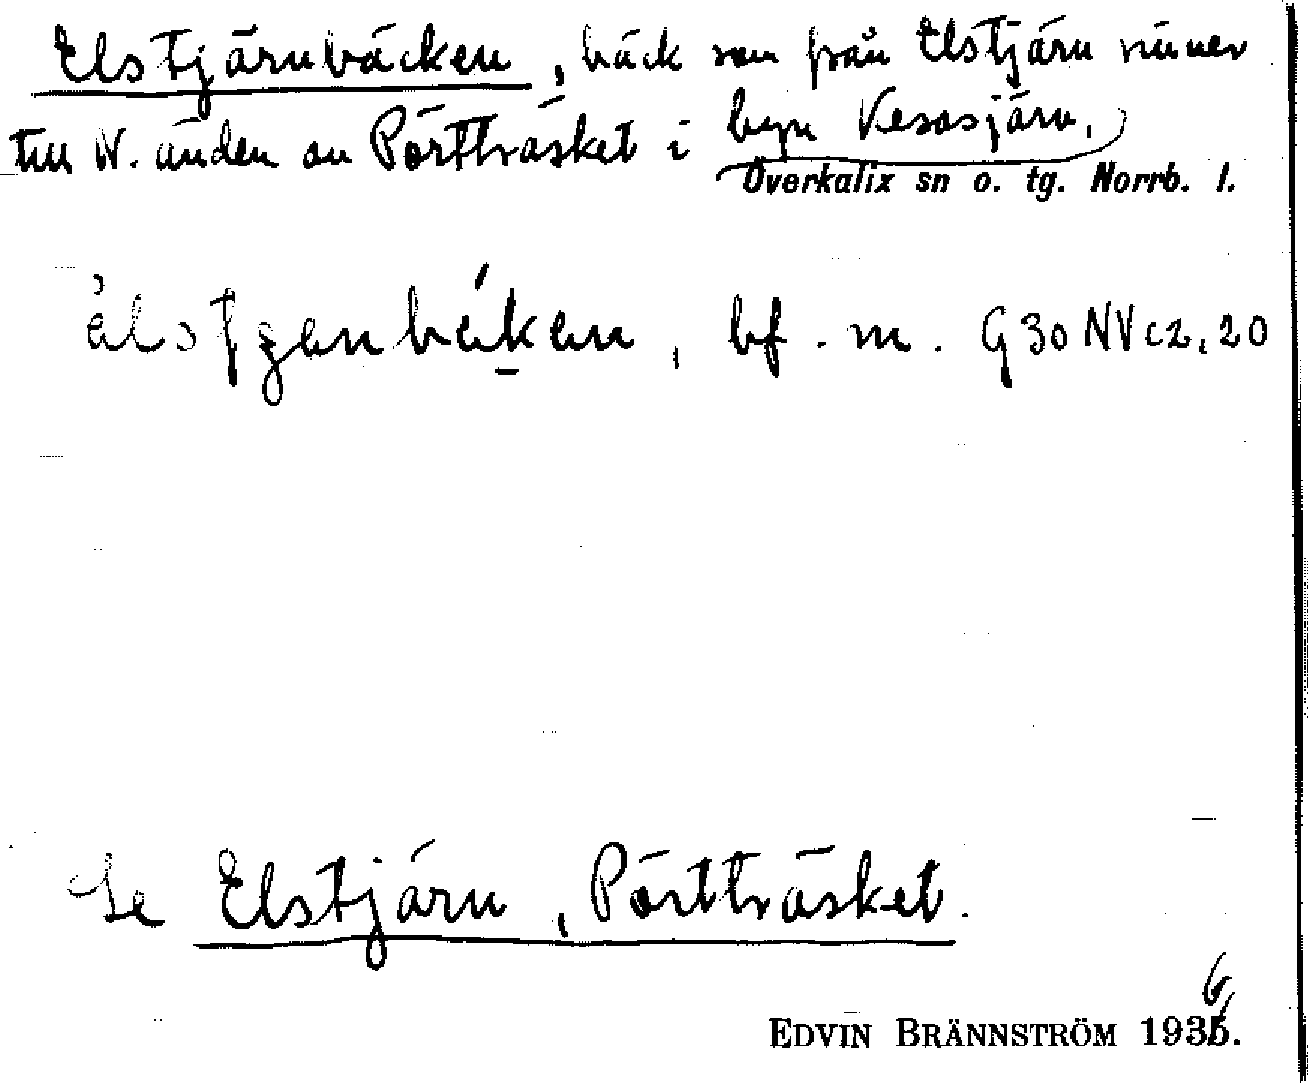 Elstjärnbäcken, bäck som från Elstjärn rinner
till N. änden av Pörtträsket i byn Vesasjärv,
Överkalix sn o. tg. Norrb. l.
bf. m. G30NVc2,20
Se Elstjärn, Pörtträsket.
EDVIN BRÄNNSTRÖM 1936.